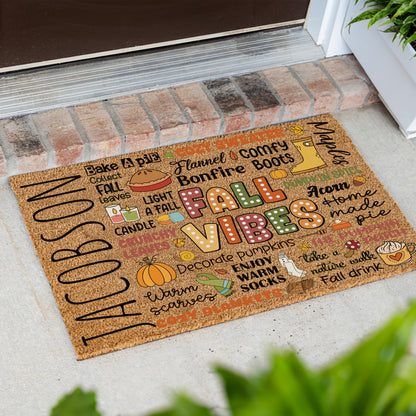 JACOBSON
Bake A pie
Collect
FALL
leaves
LIGHT
A FALL
CANDLE
Flannel
COMFY
Bonfire
BOOTS
Maples
Acorn
Home
made
pie
FALL
VIBES
Decorate pumpkins
Warm
scarves
ENJOY
WARM
SOCKS
take a
nature walk
Fall drink
COZY BLANKETS